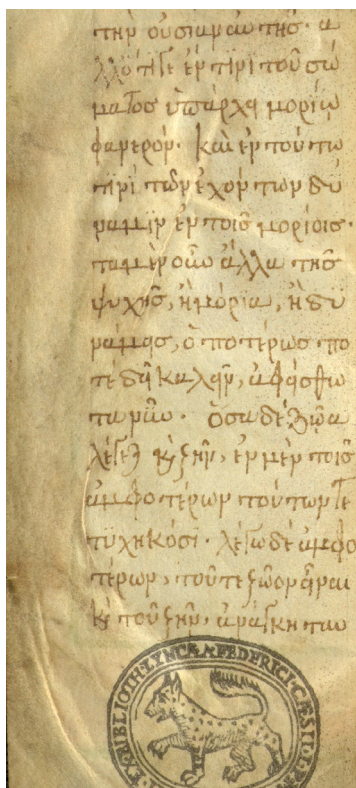 τὴν οὐσίαν αὐτῆς· ἀ
λλότι γε ἐν τινὶ τοῦ σώ
ματος ὑπάρχει μορίῳ
φανερόν· καὶ ἐν τούτω
τινὶ τῶν ἐχόντων δύ
ναμιν ἐν τοῖς μορίοις·
τὰ μὲν οὖν ἄλλα τῆς
ψυχῆς, ἢ μόρια, ἢ δυ
νάμεις, ὁποτέρως πο
τὲ δεῖ καλεῖν, ἀφείσθω
τανῦν· ὅσα δὲ ζῶα
λέγεται καὶ ζῆν, ἐν μὲν τοῖς
ἀμφοτέρων τούτων τε
τυχηκόσι· λέγω δὲ ἀμφο
τέρων, τοῦ τε ζῶον εἶναι
καὶ τοῦ ζῆν, ἀνάγκη ταυ
EX·BIBLIOTH·LYNCÆA FEDERICI·CÆSII